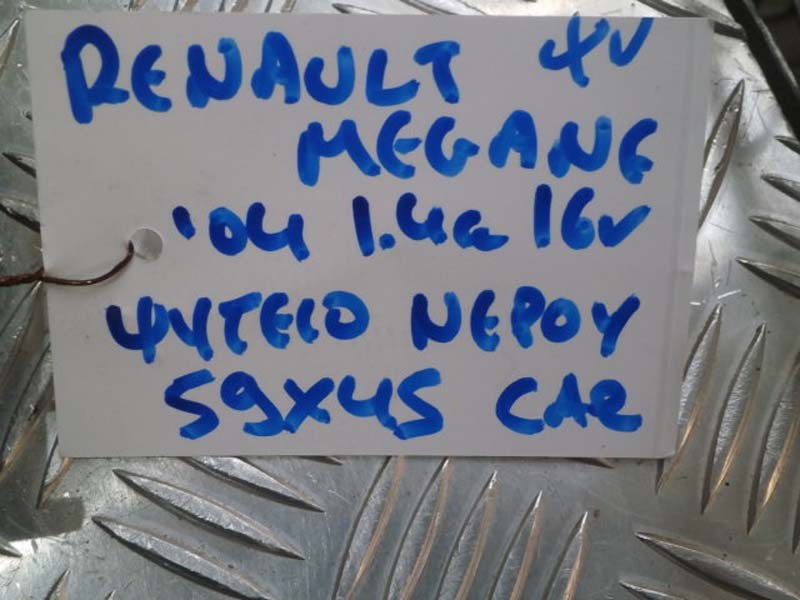 RENAULT ψυ
MEGANE
'04 1.4cc 16v
ΨΥΓΕΙΟ ΝΕΡΟΥ
59X45 CAR